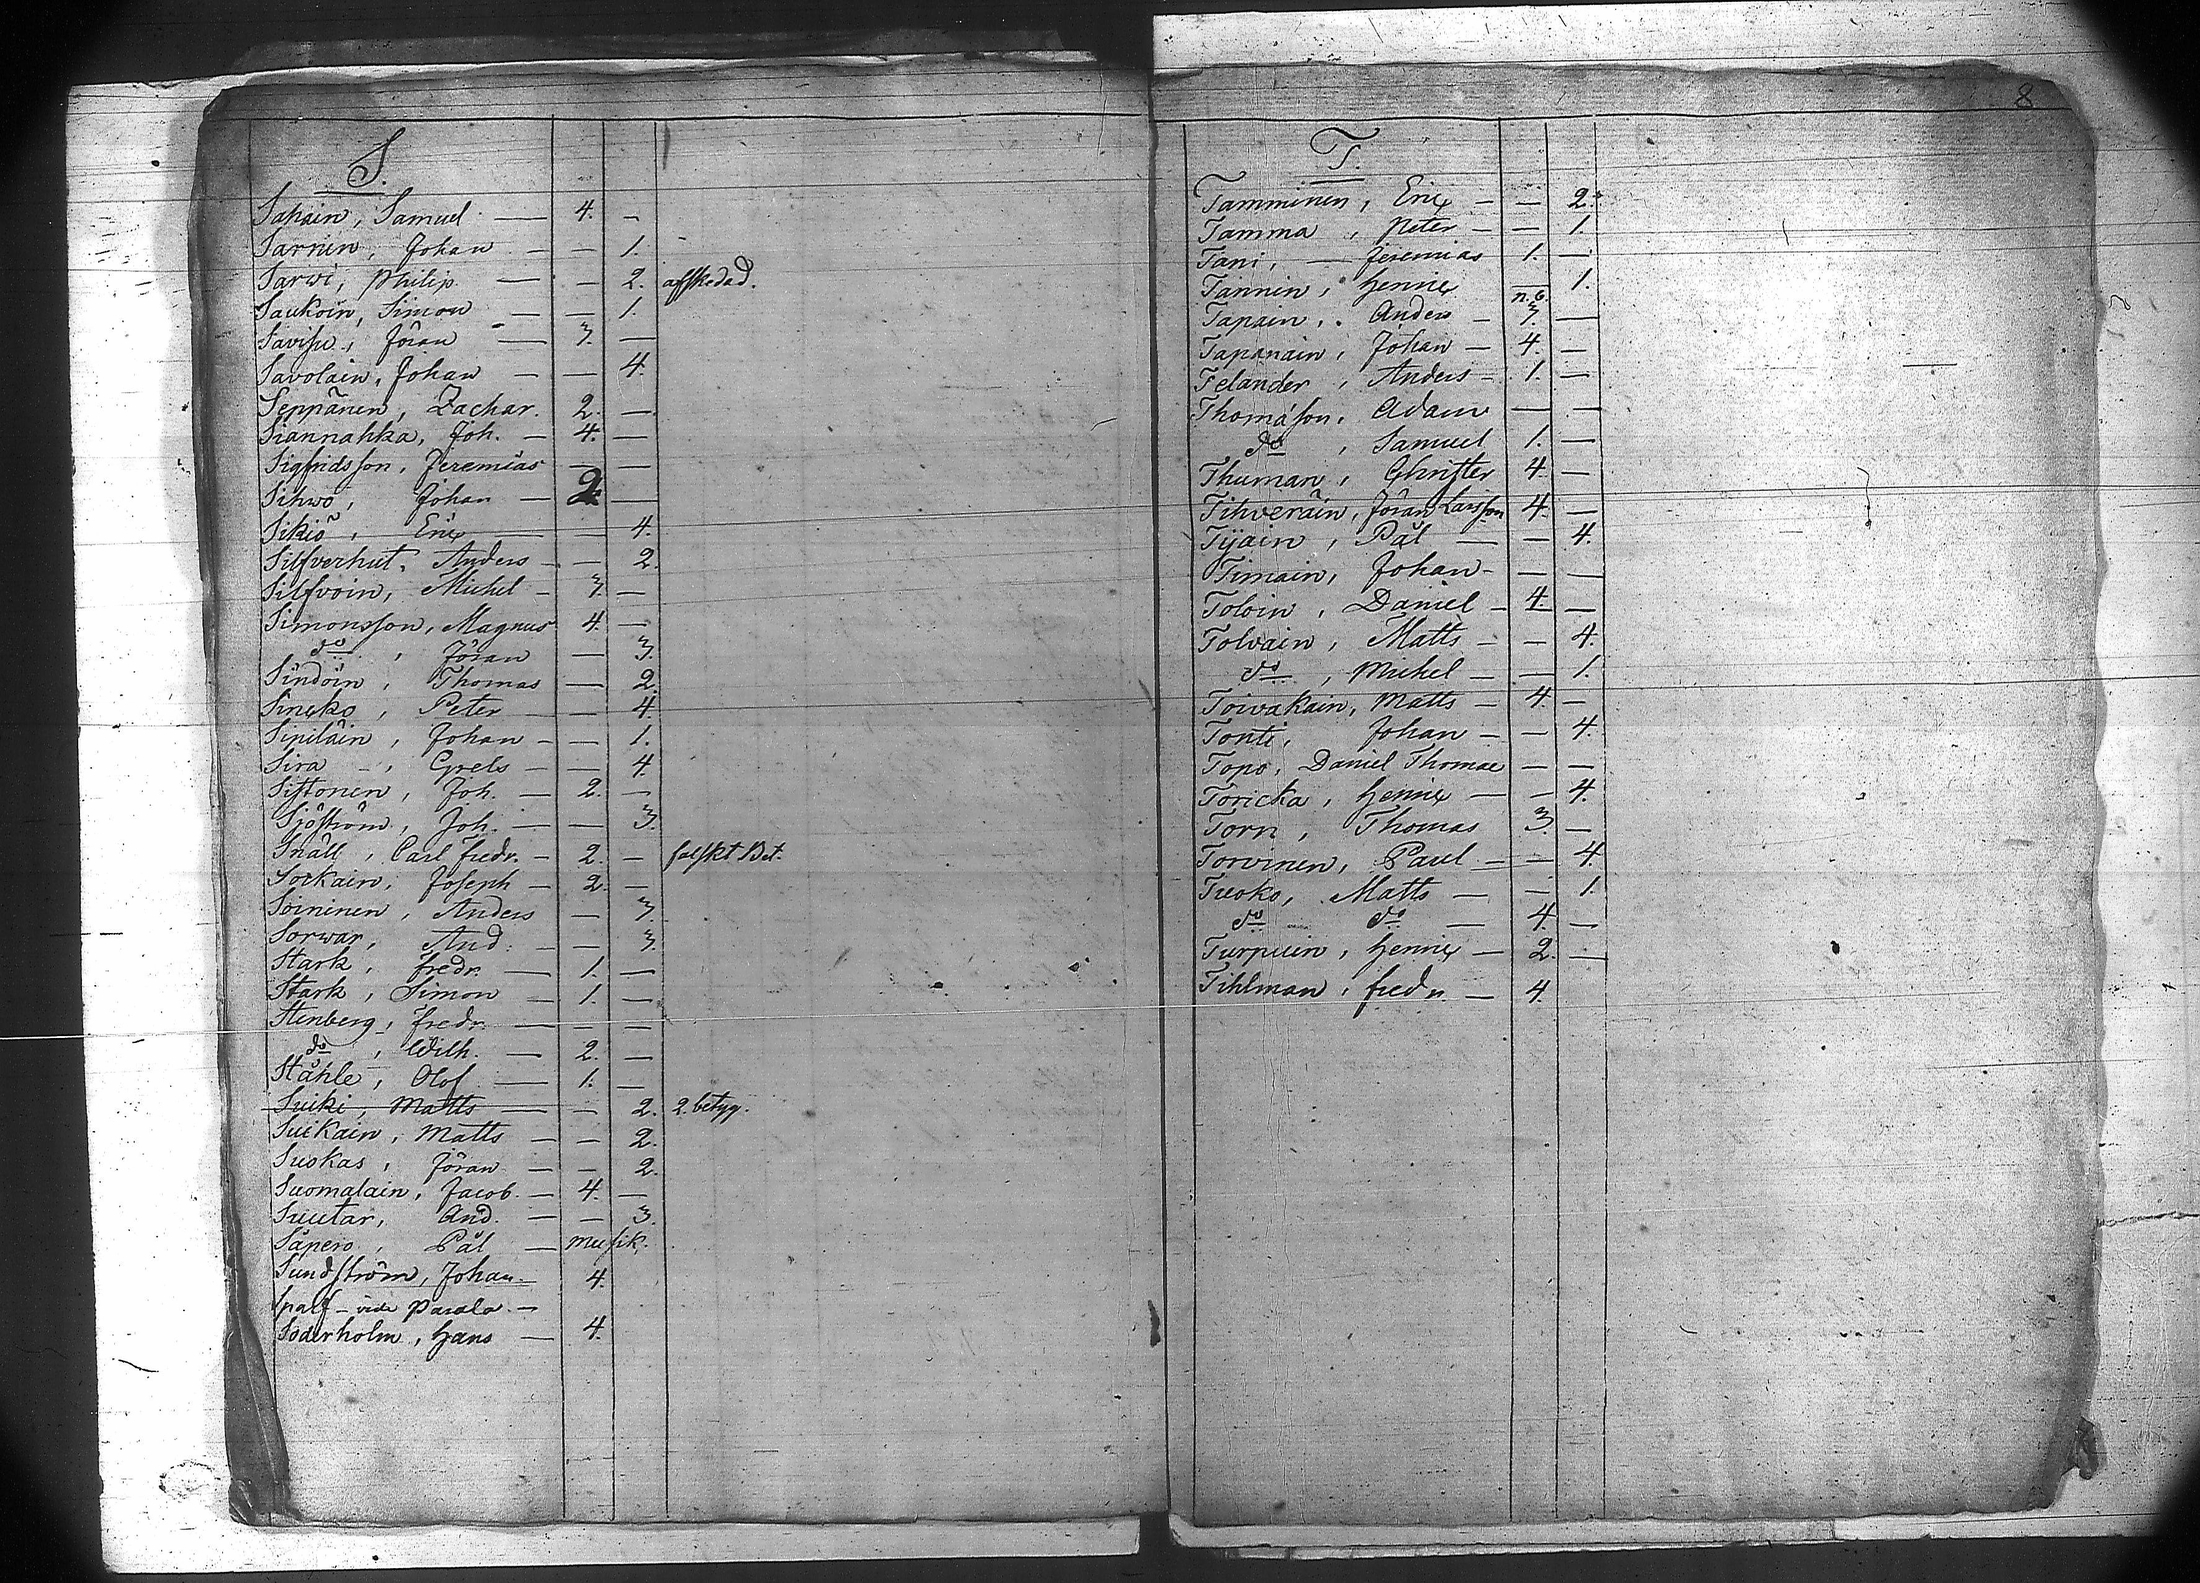 S.
Sapain, Samuel — 4. —
Sarnen, Johan — — 1.
Sarwi, Philip. — — 2. afskedad.
Saukoin, Simon — — 1.
Savisu, Jöran — 3. —
Savolain, Johan — — 4.
Seppänen, Zachar. 2. —
Siannahka, Joh. — 4. —
Sigfridsson, Jeremias — —
Sihwo, Johan — 2. —
Sikiö, Eric — — 4.
Silfverhut, Anders — — 2.
Silfvoin, Michel — 3. —
Simonsson, Magnus 4. —
do, Jöran — 3.
Sindoin, Thomas — 2.
Sincko, Peter — — 4.
Siniläin, Johan — — 1.
Sira —, Grels — — 4.
Sistonen, Joh. — 2. —
Sjöström, Joh. — — 3.
Snäll, Carl Fredr. — 2. — falskt Bet.
Sockain, Joseph — 2. —
Soininen, Anders — 3.
Sorwar, And. — — 3.
Stark, Fredr. — 1. —
Stark, Simon — 1. —
Stenberg, Fredr. — — —
do, Wilh. — 2. —
Ståhle, Olof — 1. —
Suiki, Matts — — 2. 2. betyg.
Suikain, Matts — — 2.
Suokas, Jöran — — 2.
Suomalain, Jacob. — 4. —
Suutar, And. — — 3.
Säpero, Pål — musik.
Sundström, Johan. 4.
Sparf — vide Parala —
Söderholm, Hans — 4.
8
T.
Tamminen, Eric — — 2.
Tamma, Peter — — 1.
Tani, — Jeremias 1. —
Tannin, Henric — 1.
n.b.
Tapain, Anders — 3. —
Tapanain, Johan — 4. —
Telander, Anders — 1. —
Thomasson, Adam — —
do, Samuel 1. —
Thuman, Christer 4. —
Tihveräin, Jöran Larsson 4. —
Tijain, Pål — — 4.
Timain, Johan — — —
Toloin, Daniel — 4. —
Tolvain, Matts — — 4.
do, Michel — — 1.
Toivakain, Matts — 4. —
Tonti, Johan — — 4.
Topo, Daniel Thomae — —
Toricka, Henric — — 4.
Torn, Thomas 3. —
Torvinen, Paul — — 4.
Tuoko, Matts — — 1.
do do — 4. —
Turpuin, Henric — 2. —
Tihlman, Fredr. — 4.